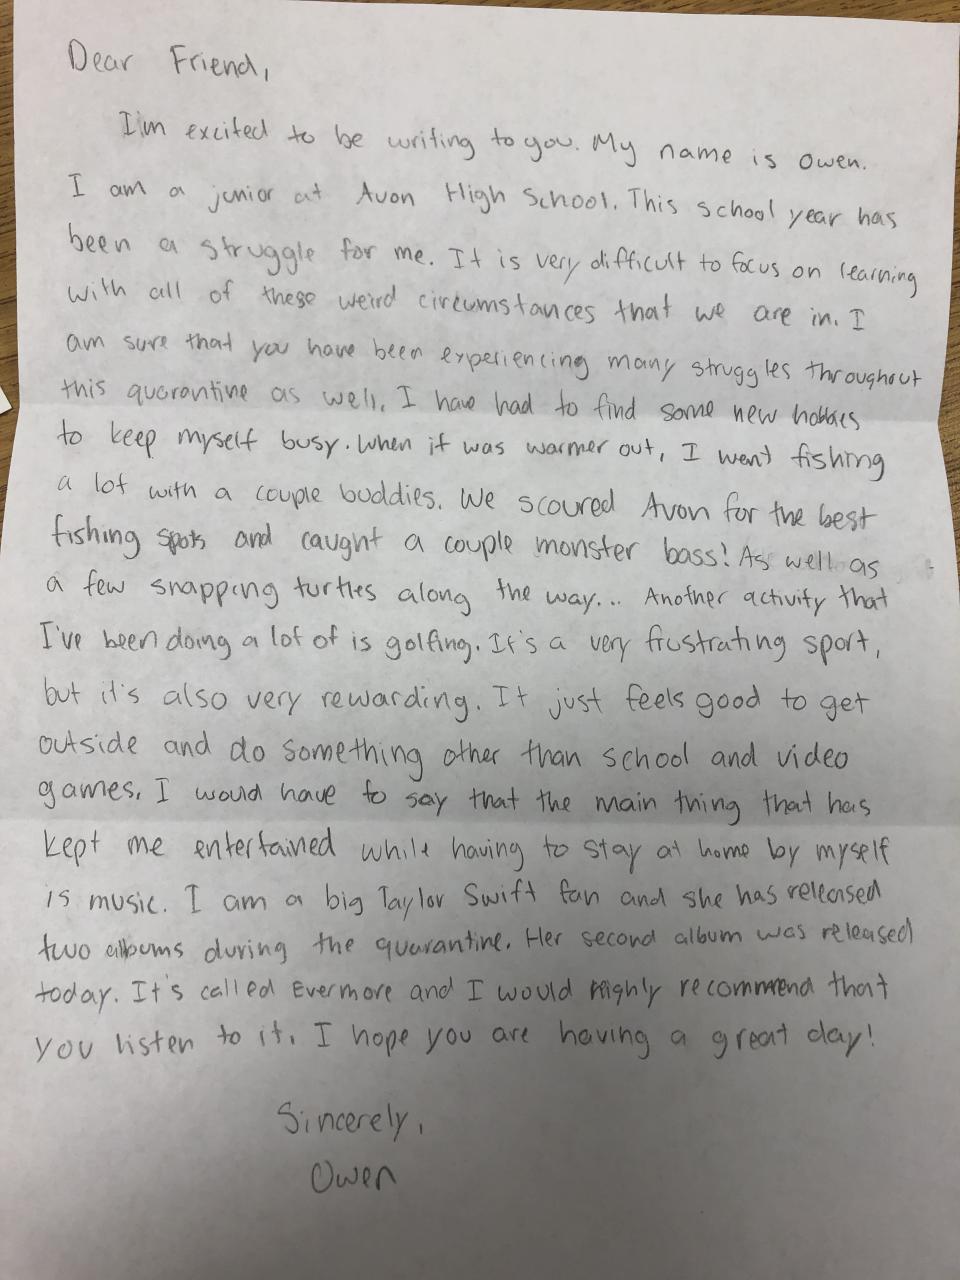 Dear Friend,
I'm excited to be writing to you. My name is Owen.
I am a junior at Avon High School. This school year has
been a struggle for me. It is very difficult to focus on learning
with all of these weird circumstances that we are in. I
am sure that you have been experiencing many struggles throughout
this quarantine as well. I have had to find some new hobbies
to keep myself busy. When it was warmer out, I went fishing
a lot with a couple buddies. We scoured Avon for the best
fishing spots and caught a couple monster bass! As well as
a few snapping turtles along the way... Another activity that
I've been doing a lot of is golfing. It's a very frustrating sport,
but it's also very rewarding. It just feels good to get
outside and do something other than school and video
games. I would have to say that the main thing that has
kept me entertained while having to stay at home by myself
is music. I am a big Taylor Swift fan and she has released
two albums during the quarantine. Her second album was released
today. It's called Evermore and I would highly recommend that
you listen to it. I hope you are having a great day!
Sincerely,
Owen